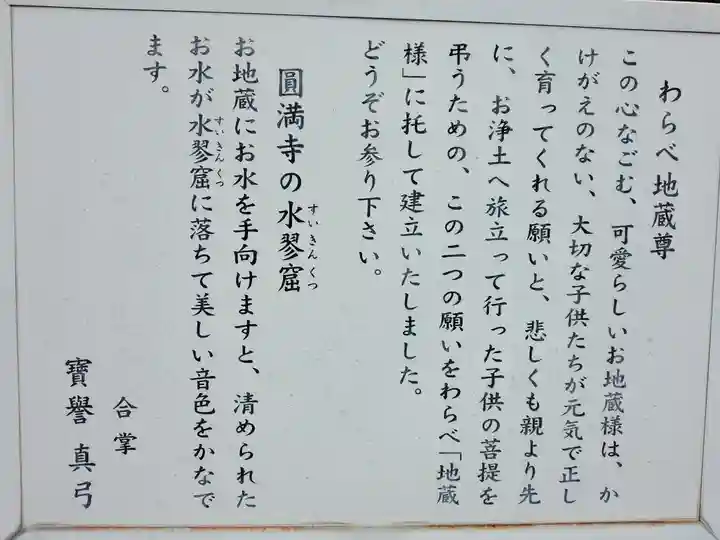 わらべ地蔵尊
この心なごむ、可愛らしいお地蔵様は、か
けがえのない、大切な子供たちが元気で正し
く育ってくれる願いと、悲しくも親より先
に、お浄土へ旅立って行った子供の菩提を
弔うための、この二つの願いをわらべ「地蔵
様」に托して建立いたしました。
どうぞお参り下さい。
圓満寺の水翏窟
すいきんくつ
お地蔵にお水を手向けますと、清められた
お水が水翏窟に落ちて美しい音色をかなで
すいきんくつ
ます。
合掌
寶譽真弓